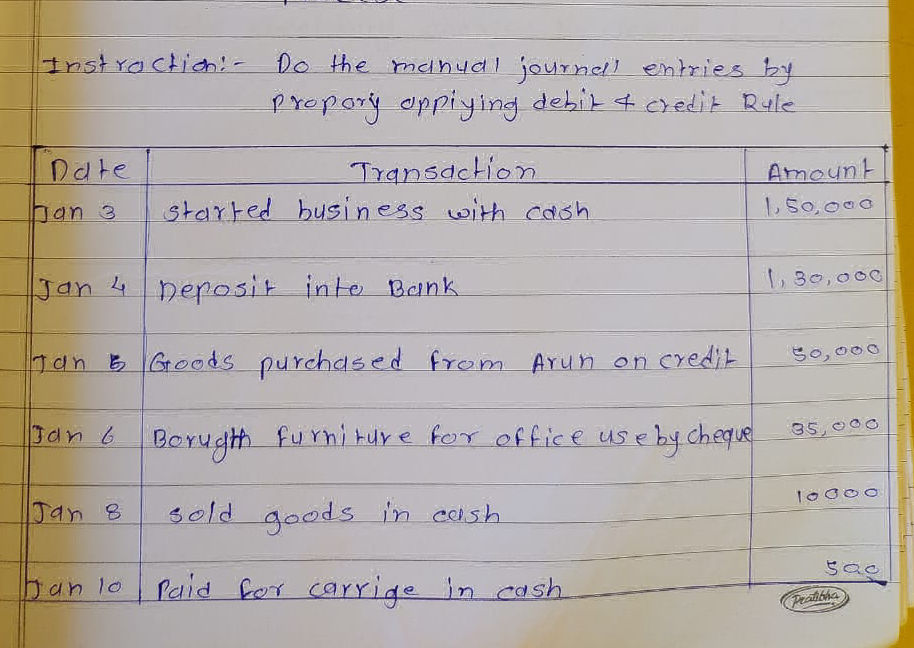 Instraction:- Do the manual journal entries by
propory appiying debit & credit Rule
Date Transaction Amount
Jan 3 started business with cash 1,50,000
Jan 4 Deposit into Bank 1,30,000
Jan 5 Goods purchased from Arun on credit 50,000
Jan 6 Borught furniture for office use by cheque 35,000
Jan 8 sold goods in cash 10000
Jan 10 Paid for carrige in cash 500
Pratibha